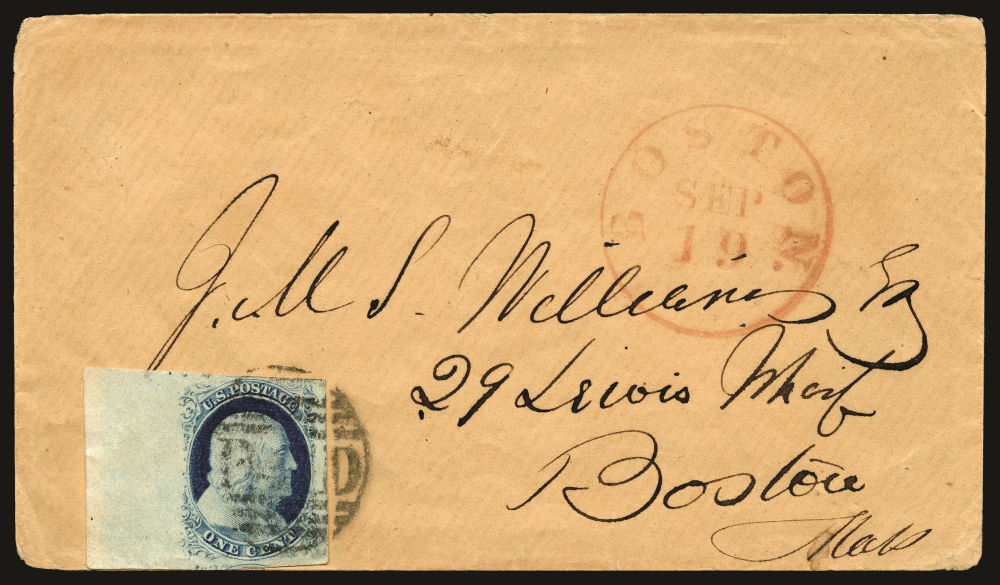 BOSTON.
SEP
19
J. M. S. Williams Esq
29 Lewis Wharf
Boston
Mass
U.S. POSTAGE
ONE CENT
PAID